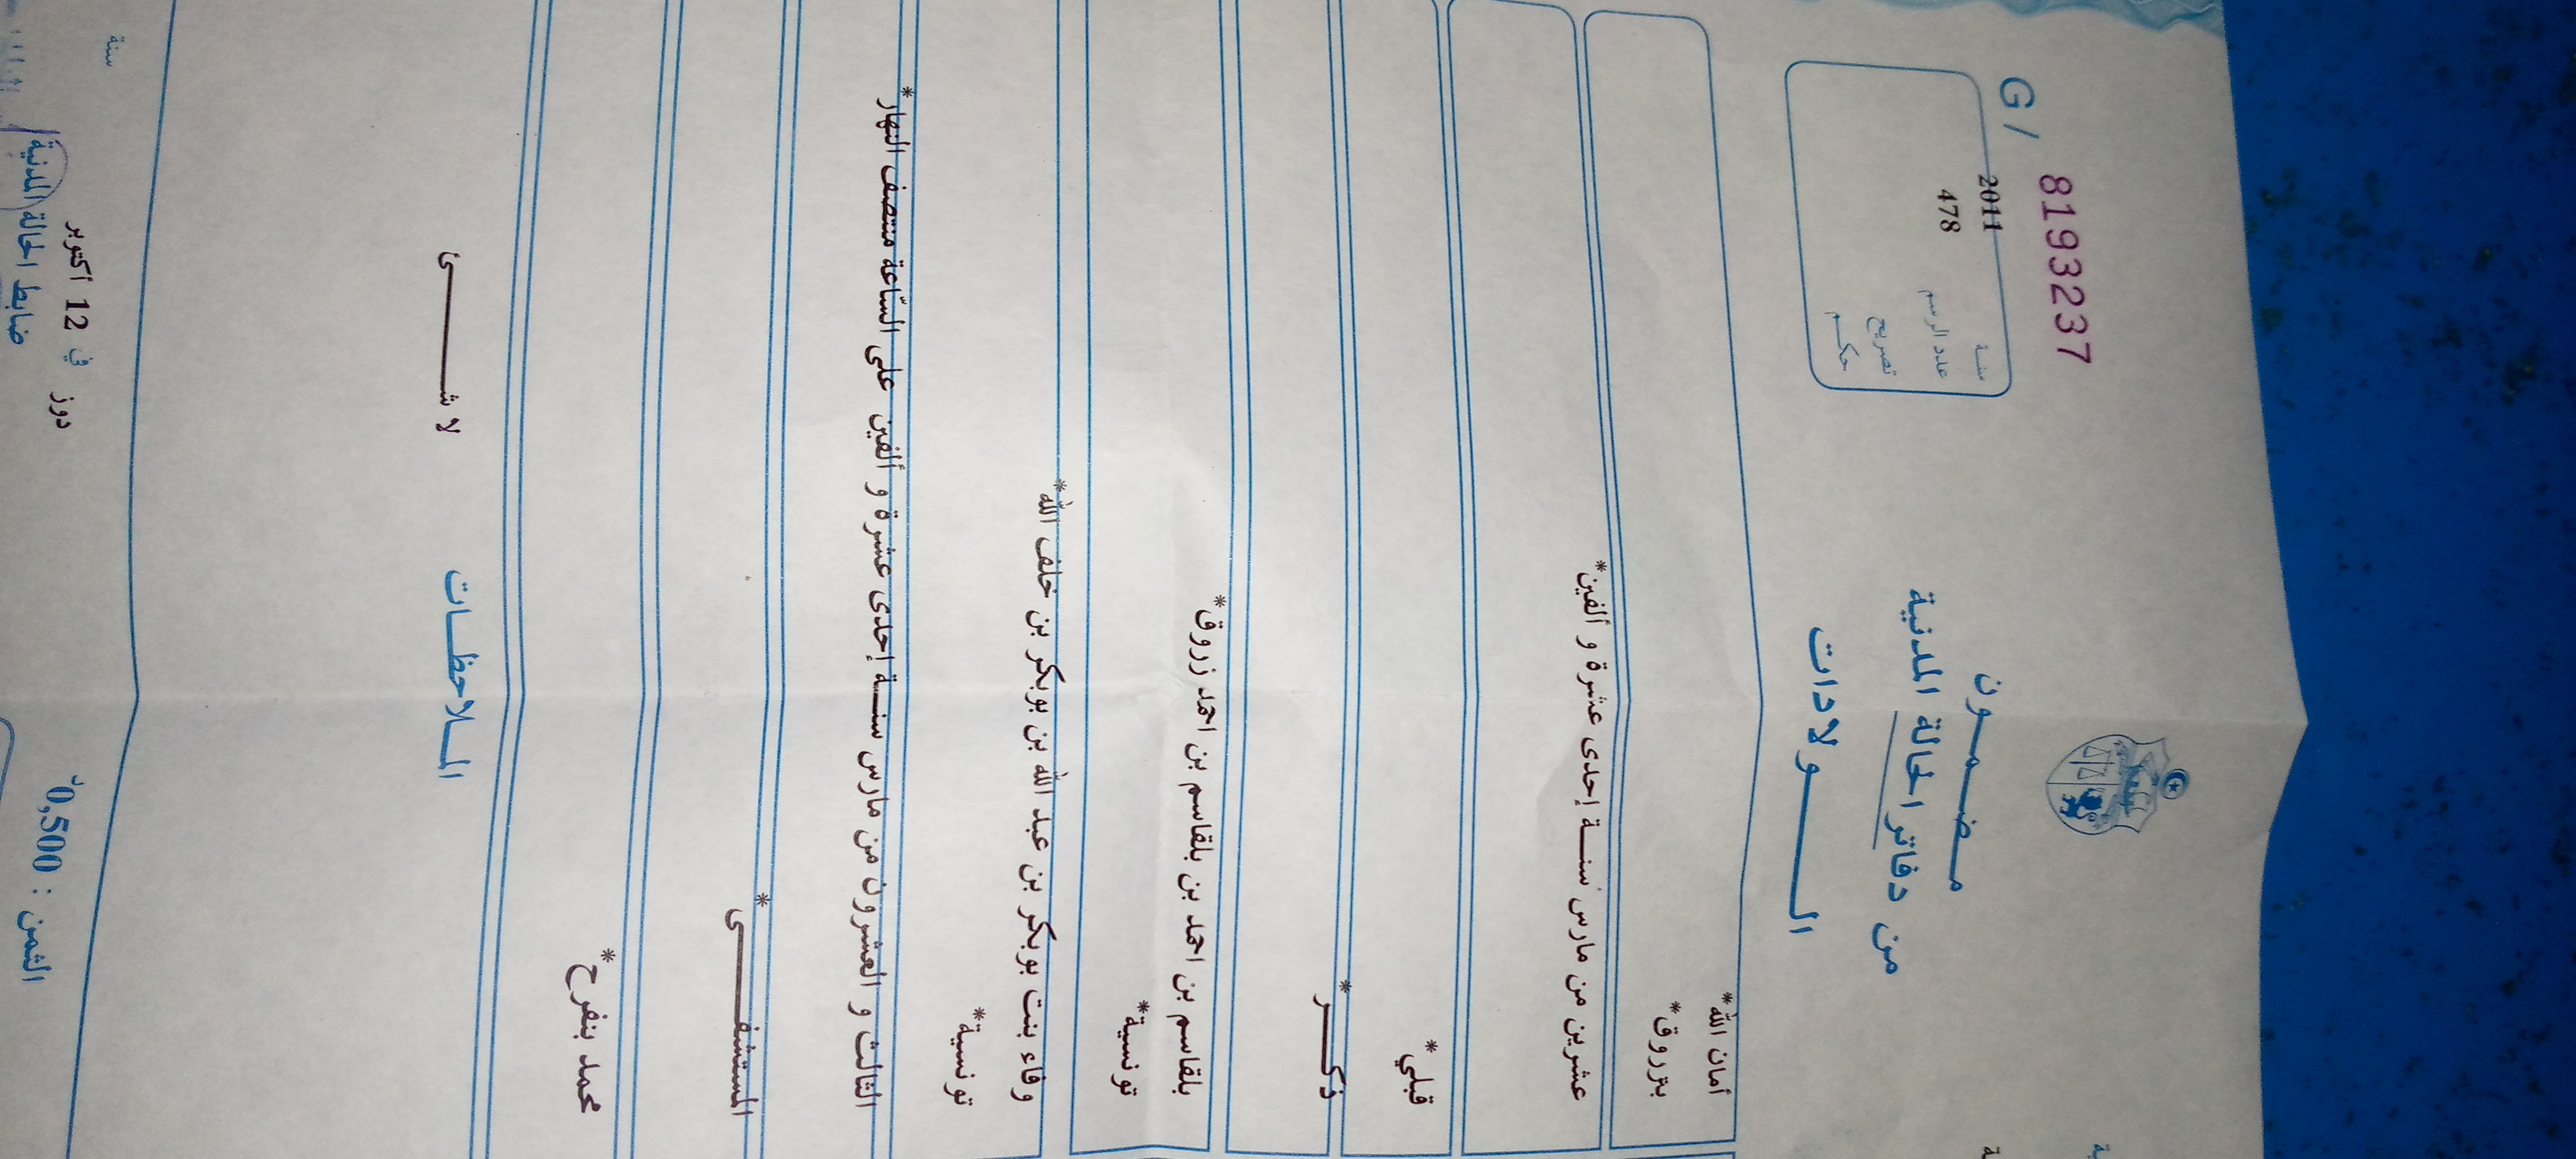 G / 8193237
2011 سنة
478 عدد الرسم
تصريح
حكم
مضمون
من دفاتر الحالة المدنية
الولادات
أمان الله*
بزروق*
عشرين من مارس سنة إحدى عشرة و ألفين*
قبلي*
ذكر*
بلقاسم بن احمد بن بلقاسم بن احمد زروق*
تونسية*
وفاء بنت بوبكر بن عبد الله بن بوبكر بن خلف الله*
تونسية*
الثالث و العشرون من مارس سنة إحدى عشرة و ألفين على السّاعة منتصف النهار*
المستشفى*
محمد بنفرح*
الملاحظات
لا شئ
دوز في 12 أكتوبر سنة
ضابط الحالة المدنية
الثمن : 0,500 د